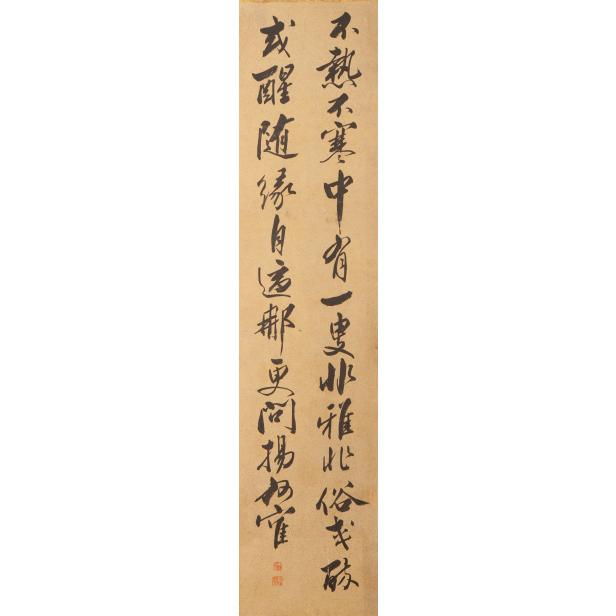 不熱不寒中有一叟非雅非俗或酔
或醒随縁自適那更問揚州寉